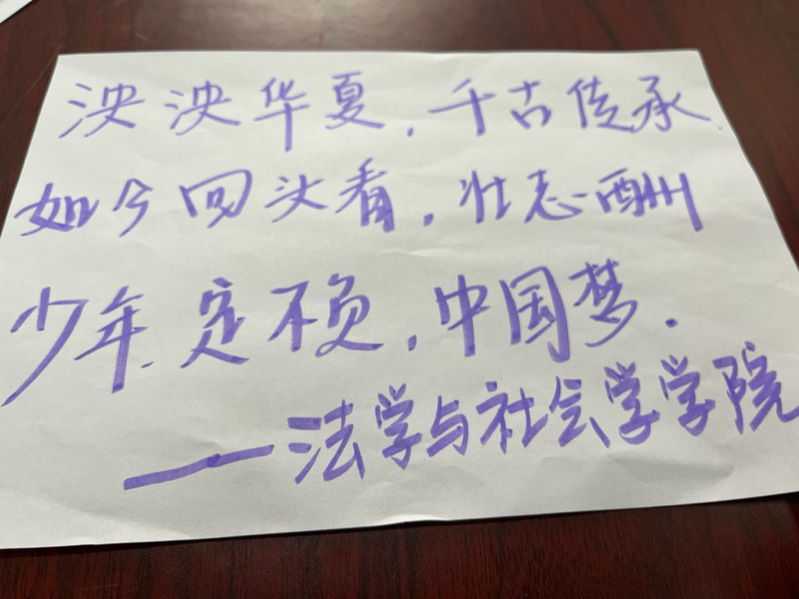 泱泱华夏，千古传承
如今回头看，壮志酬
少年定不负，中国梦.
——法学与社会学学院